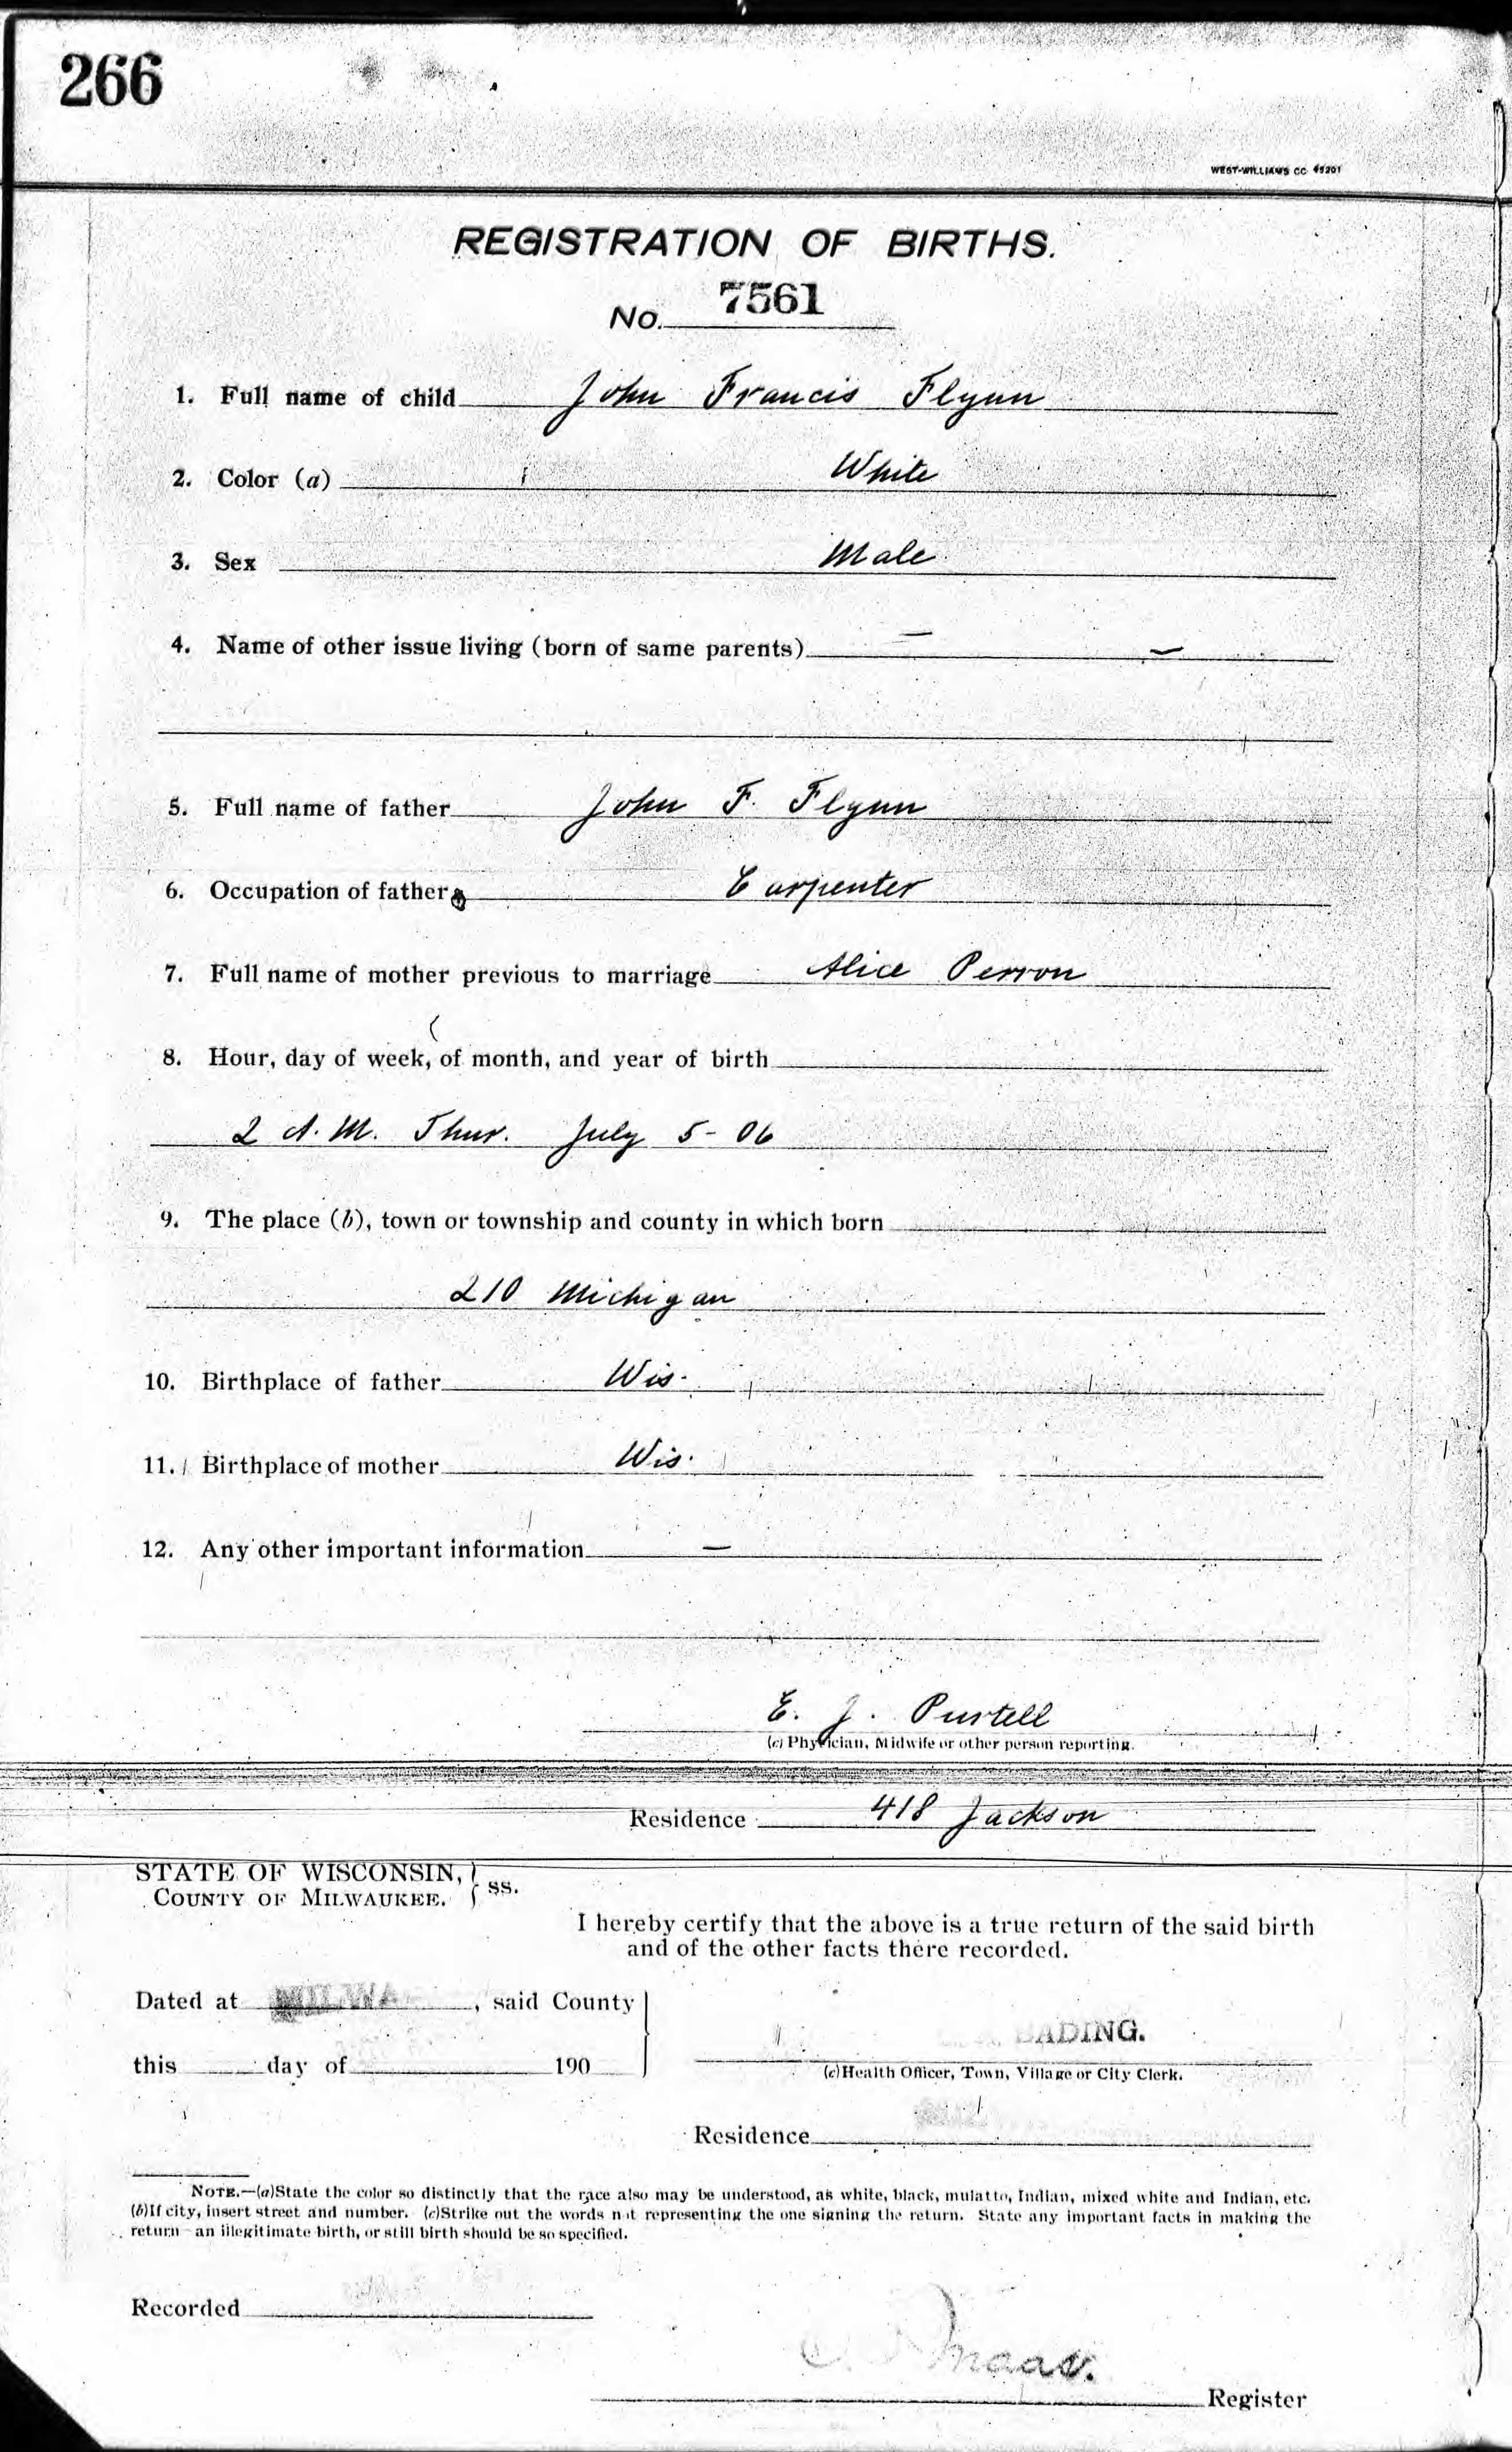 266
WEST-WILLIAMS CO 45201
REGISTRATION OF BIRTHS.
No. 7561
1. Full name of child John Francis Flynn
2. Color (a) White
3. Sex Male
4. Name of other issue living (born of same parents) — —
5. Full name of father John F. Flynn
6. Occupation of father Carpenter
7. Full name of mother previous to marriage Alice Perron
8. Hour, day of week, of month, and year of birth
2 A.M. Thur. July 5-06
9. The place (b), town or township and county in which born
210 Michigan
10. Birthplace of father Wis.
11. Birthplace of mother Wis.
12. Any other important information —
E. J. Purtell
(c) Physician, Midwife or other person reporting.
Residence 418 Jackson
STATE OF WISCONSIN,
COUNTY OF MILWAUKEE. } ss.
I hereby certify that the above is a true return of the said birth
and of the other facts there recorded.
Dated at MILWA, said County
this day of 190
BADING.
(c)Health Officer, Town, Village or City Clerk.
Residence
NOTE.—(a)State the color so distinctly that the race also may be understood, as white, black, mulatto, Indian, mixed white and Indian, etc.
(b)If city, insert street and number. (c)Strike out the words not representing the one signing the return. State any important facts in making the
return—an illegitimate birth, or still birth should be so specified.
Recorded
Maas.
Register